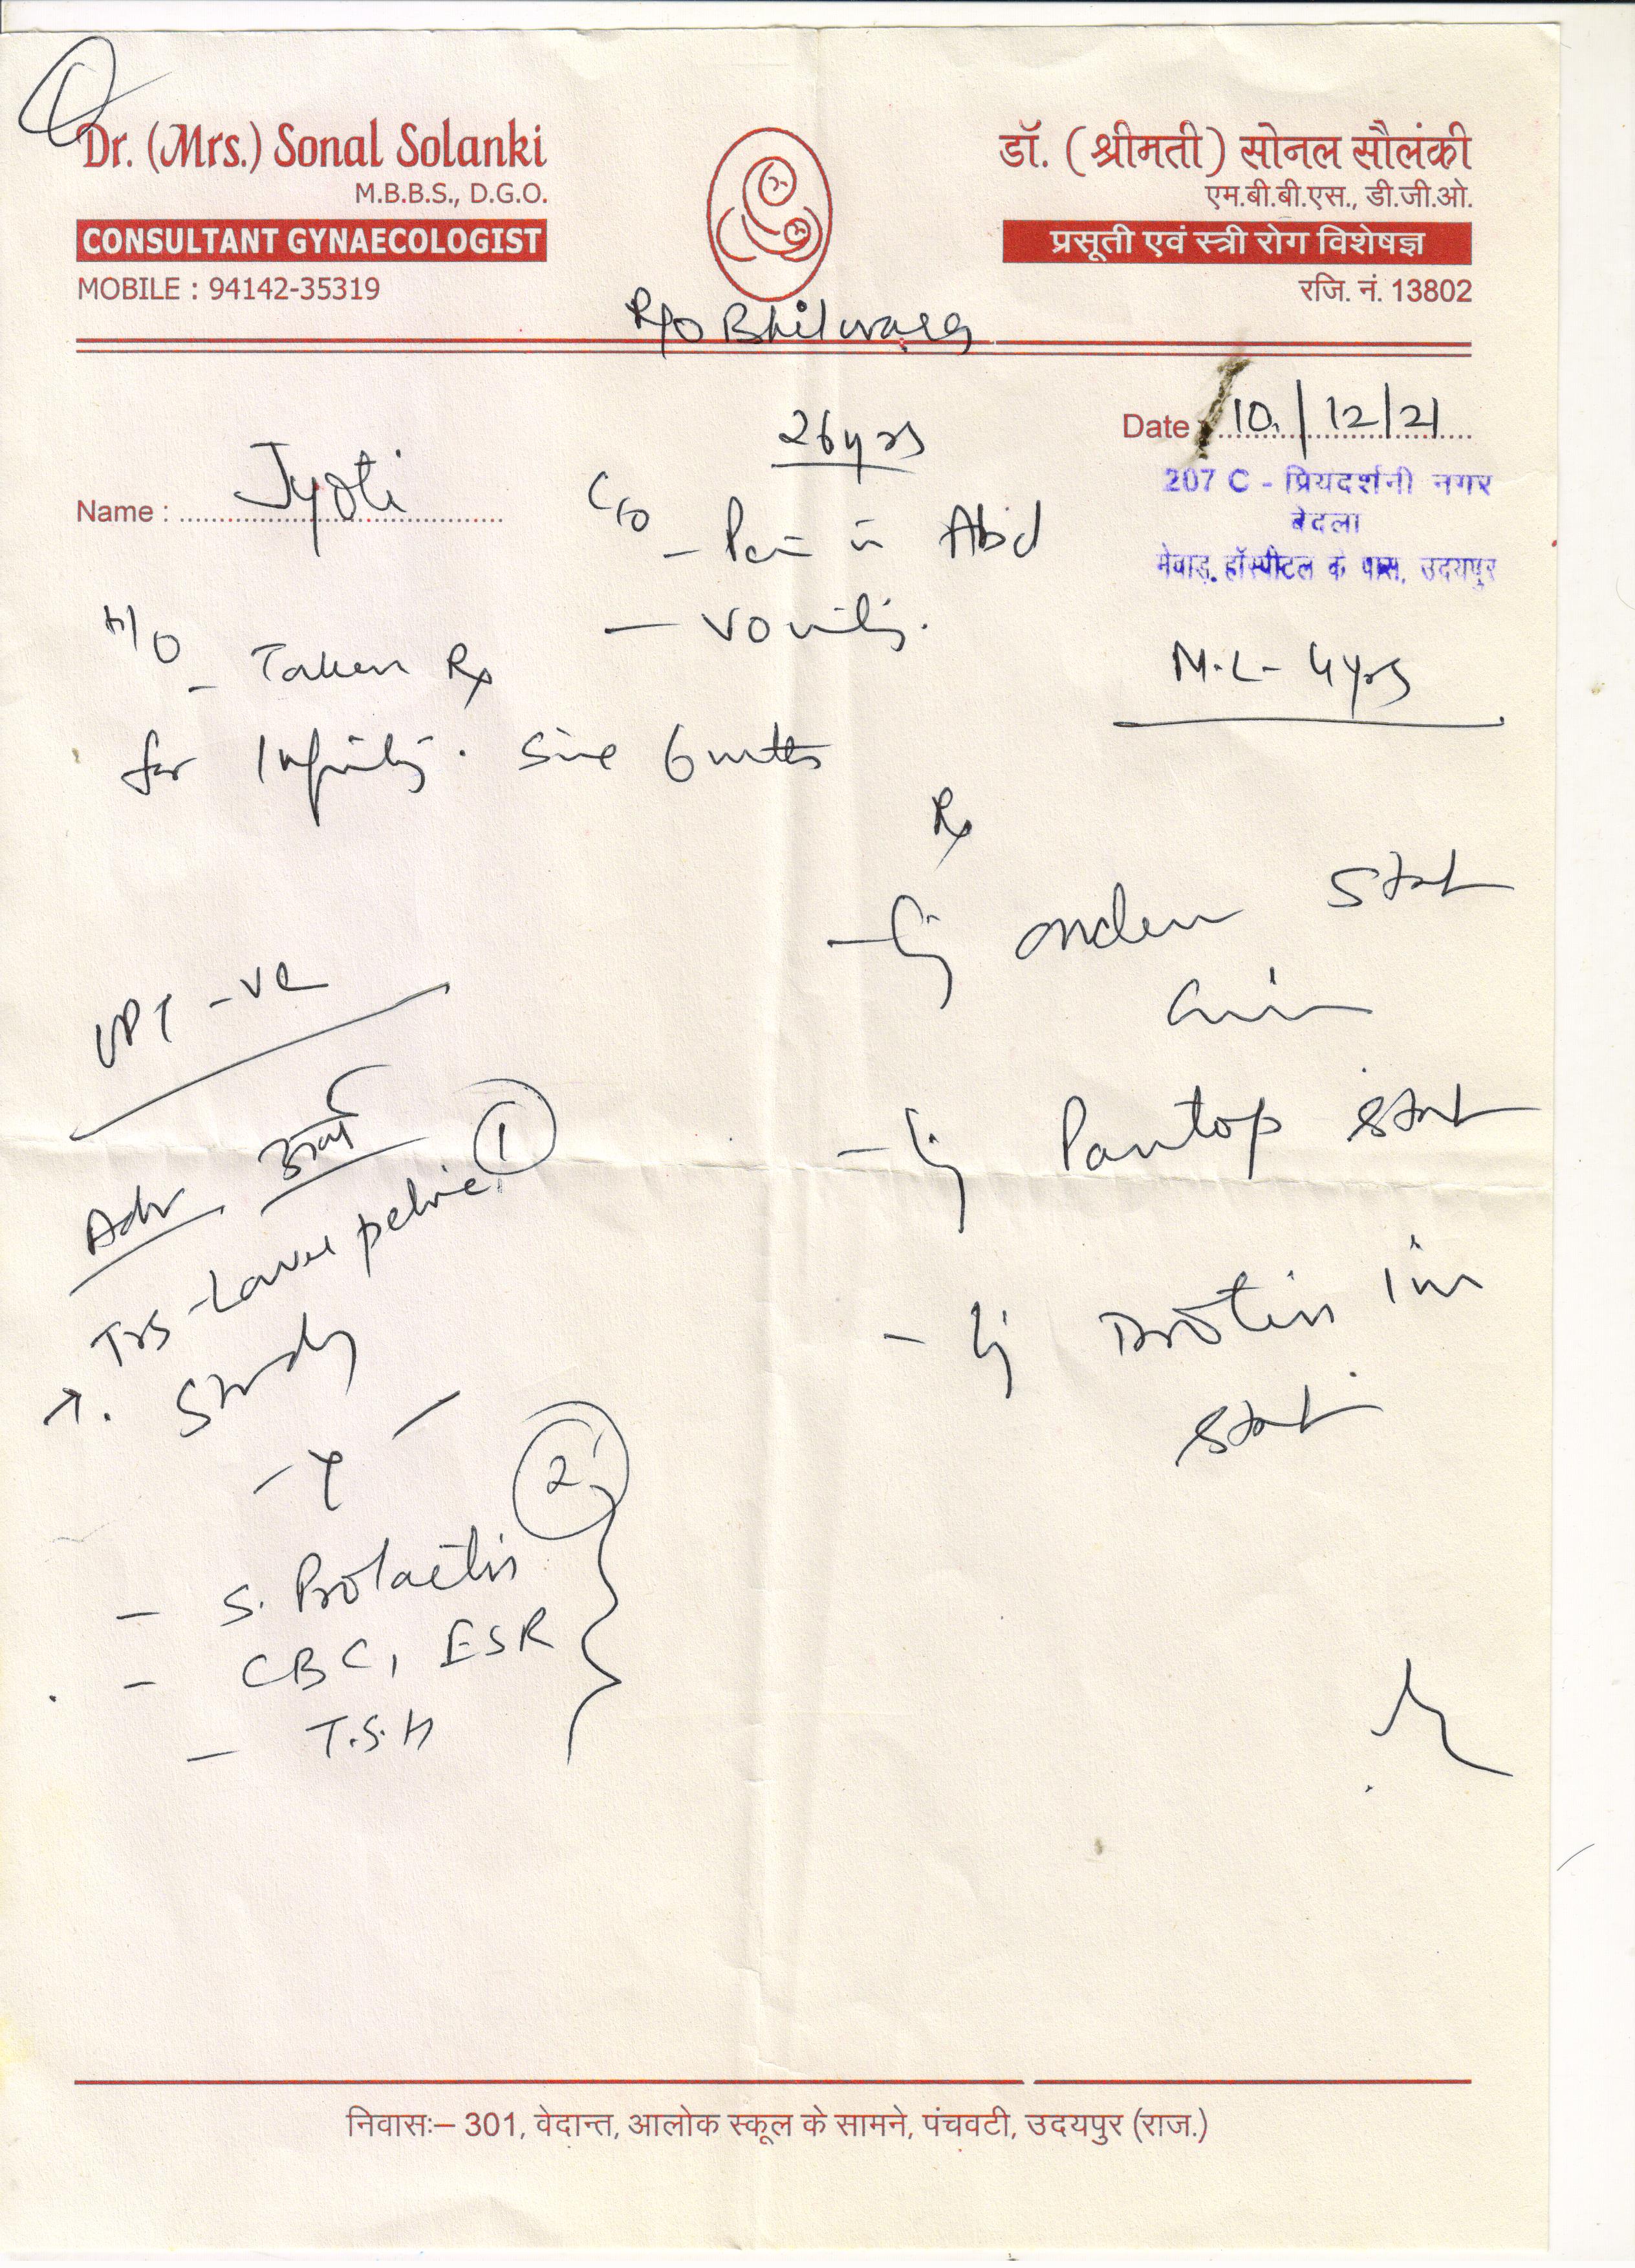 Dr. (Mrs.) Sonal Solanki
M.B.B.S., D.G.O.
CONSULTANT GYNAECOLOGIST
MOBILE : 94142-35319
डॉ. (श्रीमती) सोनल सौलंकी
एम.बी.बी.एस., डी.जी.ओ.
प्रसूती एवं स्त्री रोग विशेषज्ञ
रजि. नं. 13802
R/o Bhilwara
Date : 10/12/21
207 C - प्रियदर्शनी नगर
बेदला
मेवाड़ हॉस्पीटल के पास, उदयपुर
26 yrs
Name : Jyoti
C/o - Pain in Abd
- Vomiting.
M.L - 4 yrs
H/O - Taken Rx
for Infertility. Since 6 mths
Rx
- Inj Ondem Stat
- Inj Pantop Stat
- Inj Drotin im
Stat
UPT -ve
Adv
1
Lower pelvic
Study
2
- S. Prolactin
- CBC, ESR
- T.S.H
निवासः– 301, वेदान्त, आलोक स्कूल के सामने, पंचवटी, उदयपुर (राज.)